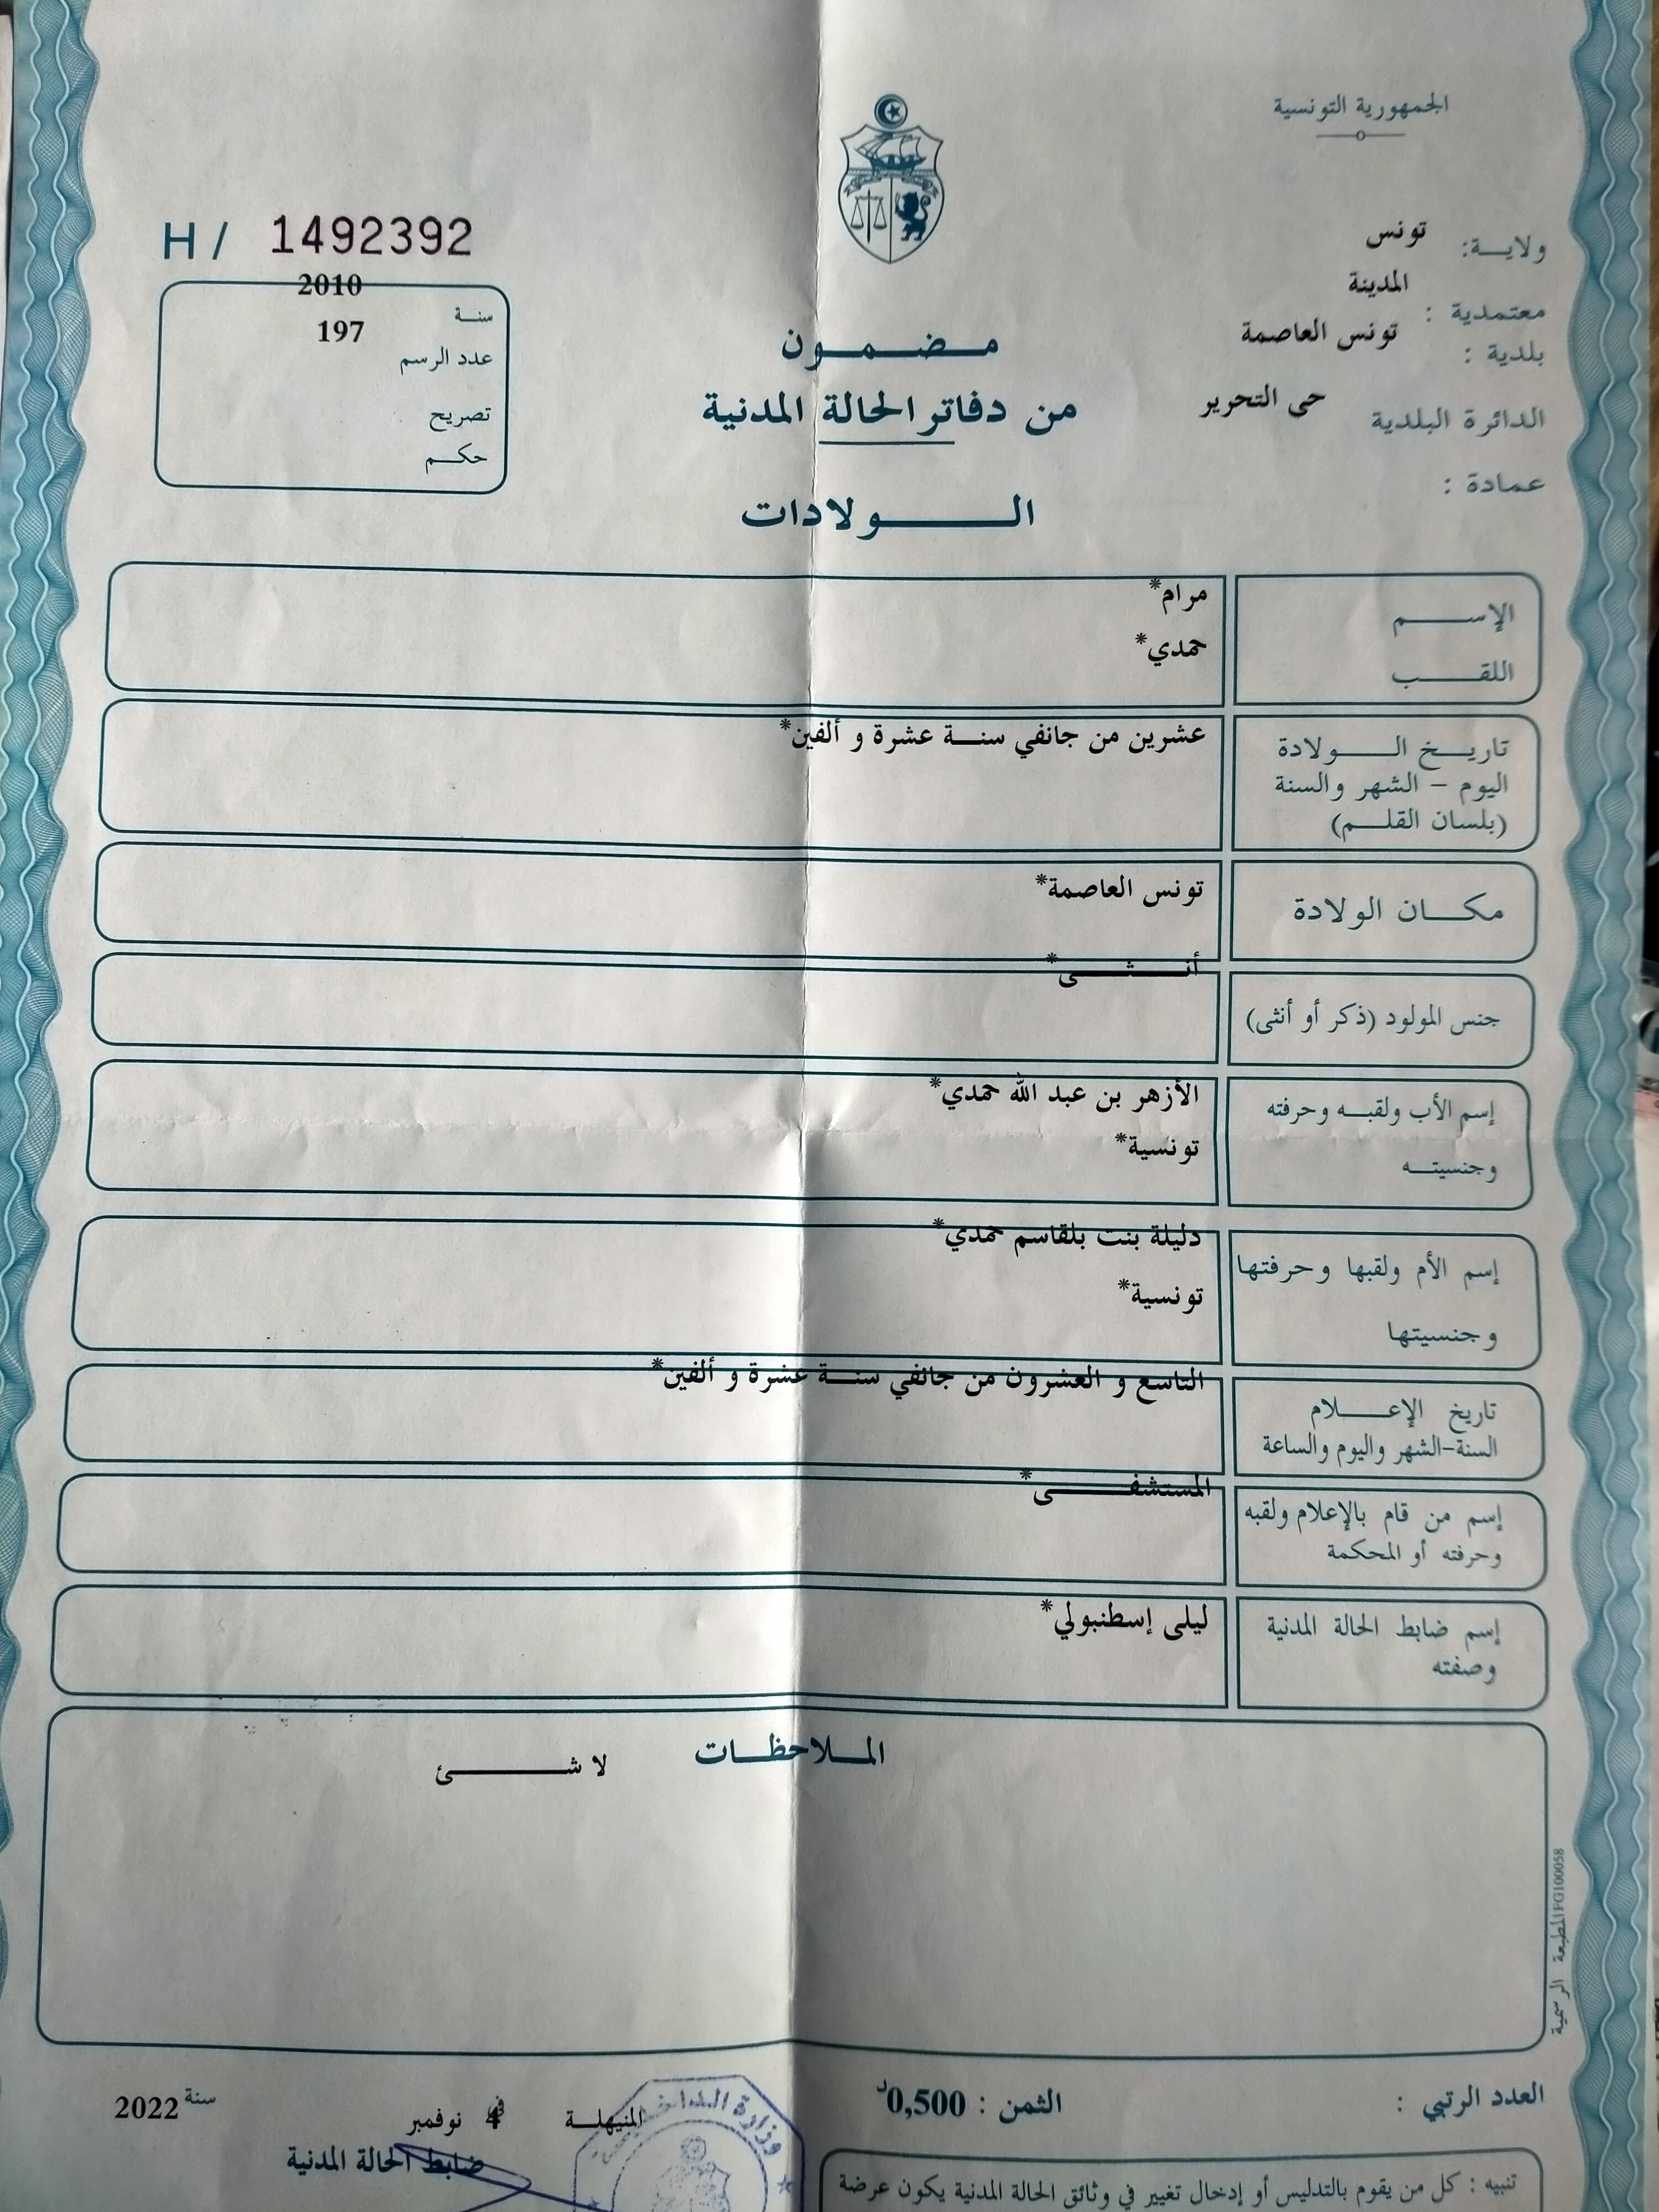 الجمهورية التونسية
ولايـــة: تونس
معتمدية : المدينة
بلدية : تونس العاصمة
الدائرة البلدية حى التحرير
عمادة :
H / 1492392
سنـة 2010
عدد الرسم 197
تصريح
حكـــم
مـــضـــمـــون
من دفاتر الحالة المدنية
الـــــولادات
الإســـــم مرام*
اللقـــــب حمدي*
تاريـــخ الـــــولادة عشرين من جانفي سنـــة عشرة و ألفين*
اليوم – الشهر والسنة
(بلسان القلـــم)
مكـــان الولادة تونس العاصمة*
جنس المولود (ذكر أو أنثى) أنـــــثـــــى*
إسم الأب ولقبـــه وحرفته الأزهر بن عبد الله حمدي*
وجنسيتـــه تونسية*
إسم الأم ولقبها وحرفتها دليلة بنت بلقاسم حمدي*
وجنسيتها تونسية*
تاريخ الإعـــلام التاسع و العشرون من جانفي سنـــة عشرة و ألفين*
السنة-الشهر واليوم والساعة
إسم من قام بالإعلام ولقبه المستشفـــــى*
وحرفته أو المحكمة
إسم ضابط الحالة المدنية ليلى إسطنبولي*
وصفته
المـــلاحظـــات
لا شـــــئ
المطبعة الرسمية FG100058
العدد الرتبي :
الثمن : 0,500د
المنيهلـــة في 4 نوفمبر سنة 2022
ضابط الحالة المدنية
وزارة الداخلية
تنبيه : كل من يقوم بالتدليس أو إدخال تغيير في وثائق الحالة المدنية يكون عرضة